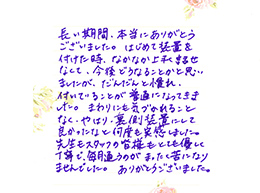 長い期間、本当にありがとう
ございました。はじめて装置を
付けた時、なかなか上手くはま
なくて、今後どうなることかと思い
ましたが、だんだんと慣れ、
付いていることが普通になってきま
した。まわりにも気づかれること
なく、やはり、裏側装置にして
良かったなと何度も実感しました。
先生もスタッフの皆様もとても優しく
丁寧で、毎月通うのが まったく苦になり
ませんでした。ありがとうございました。